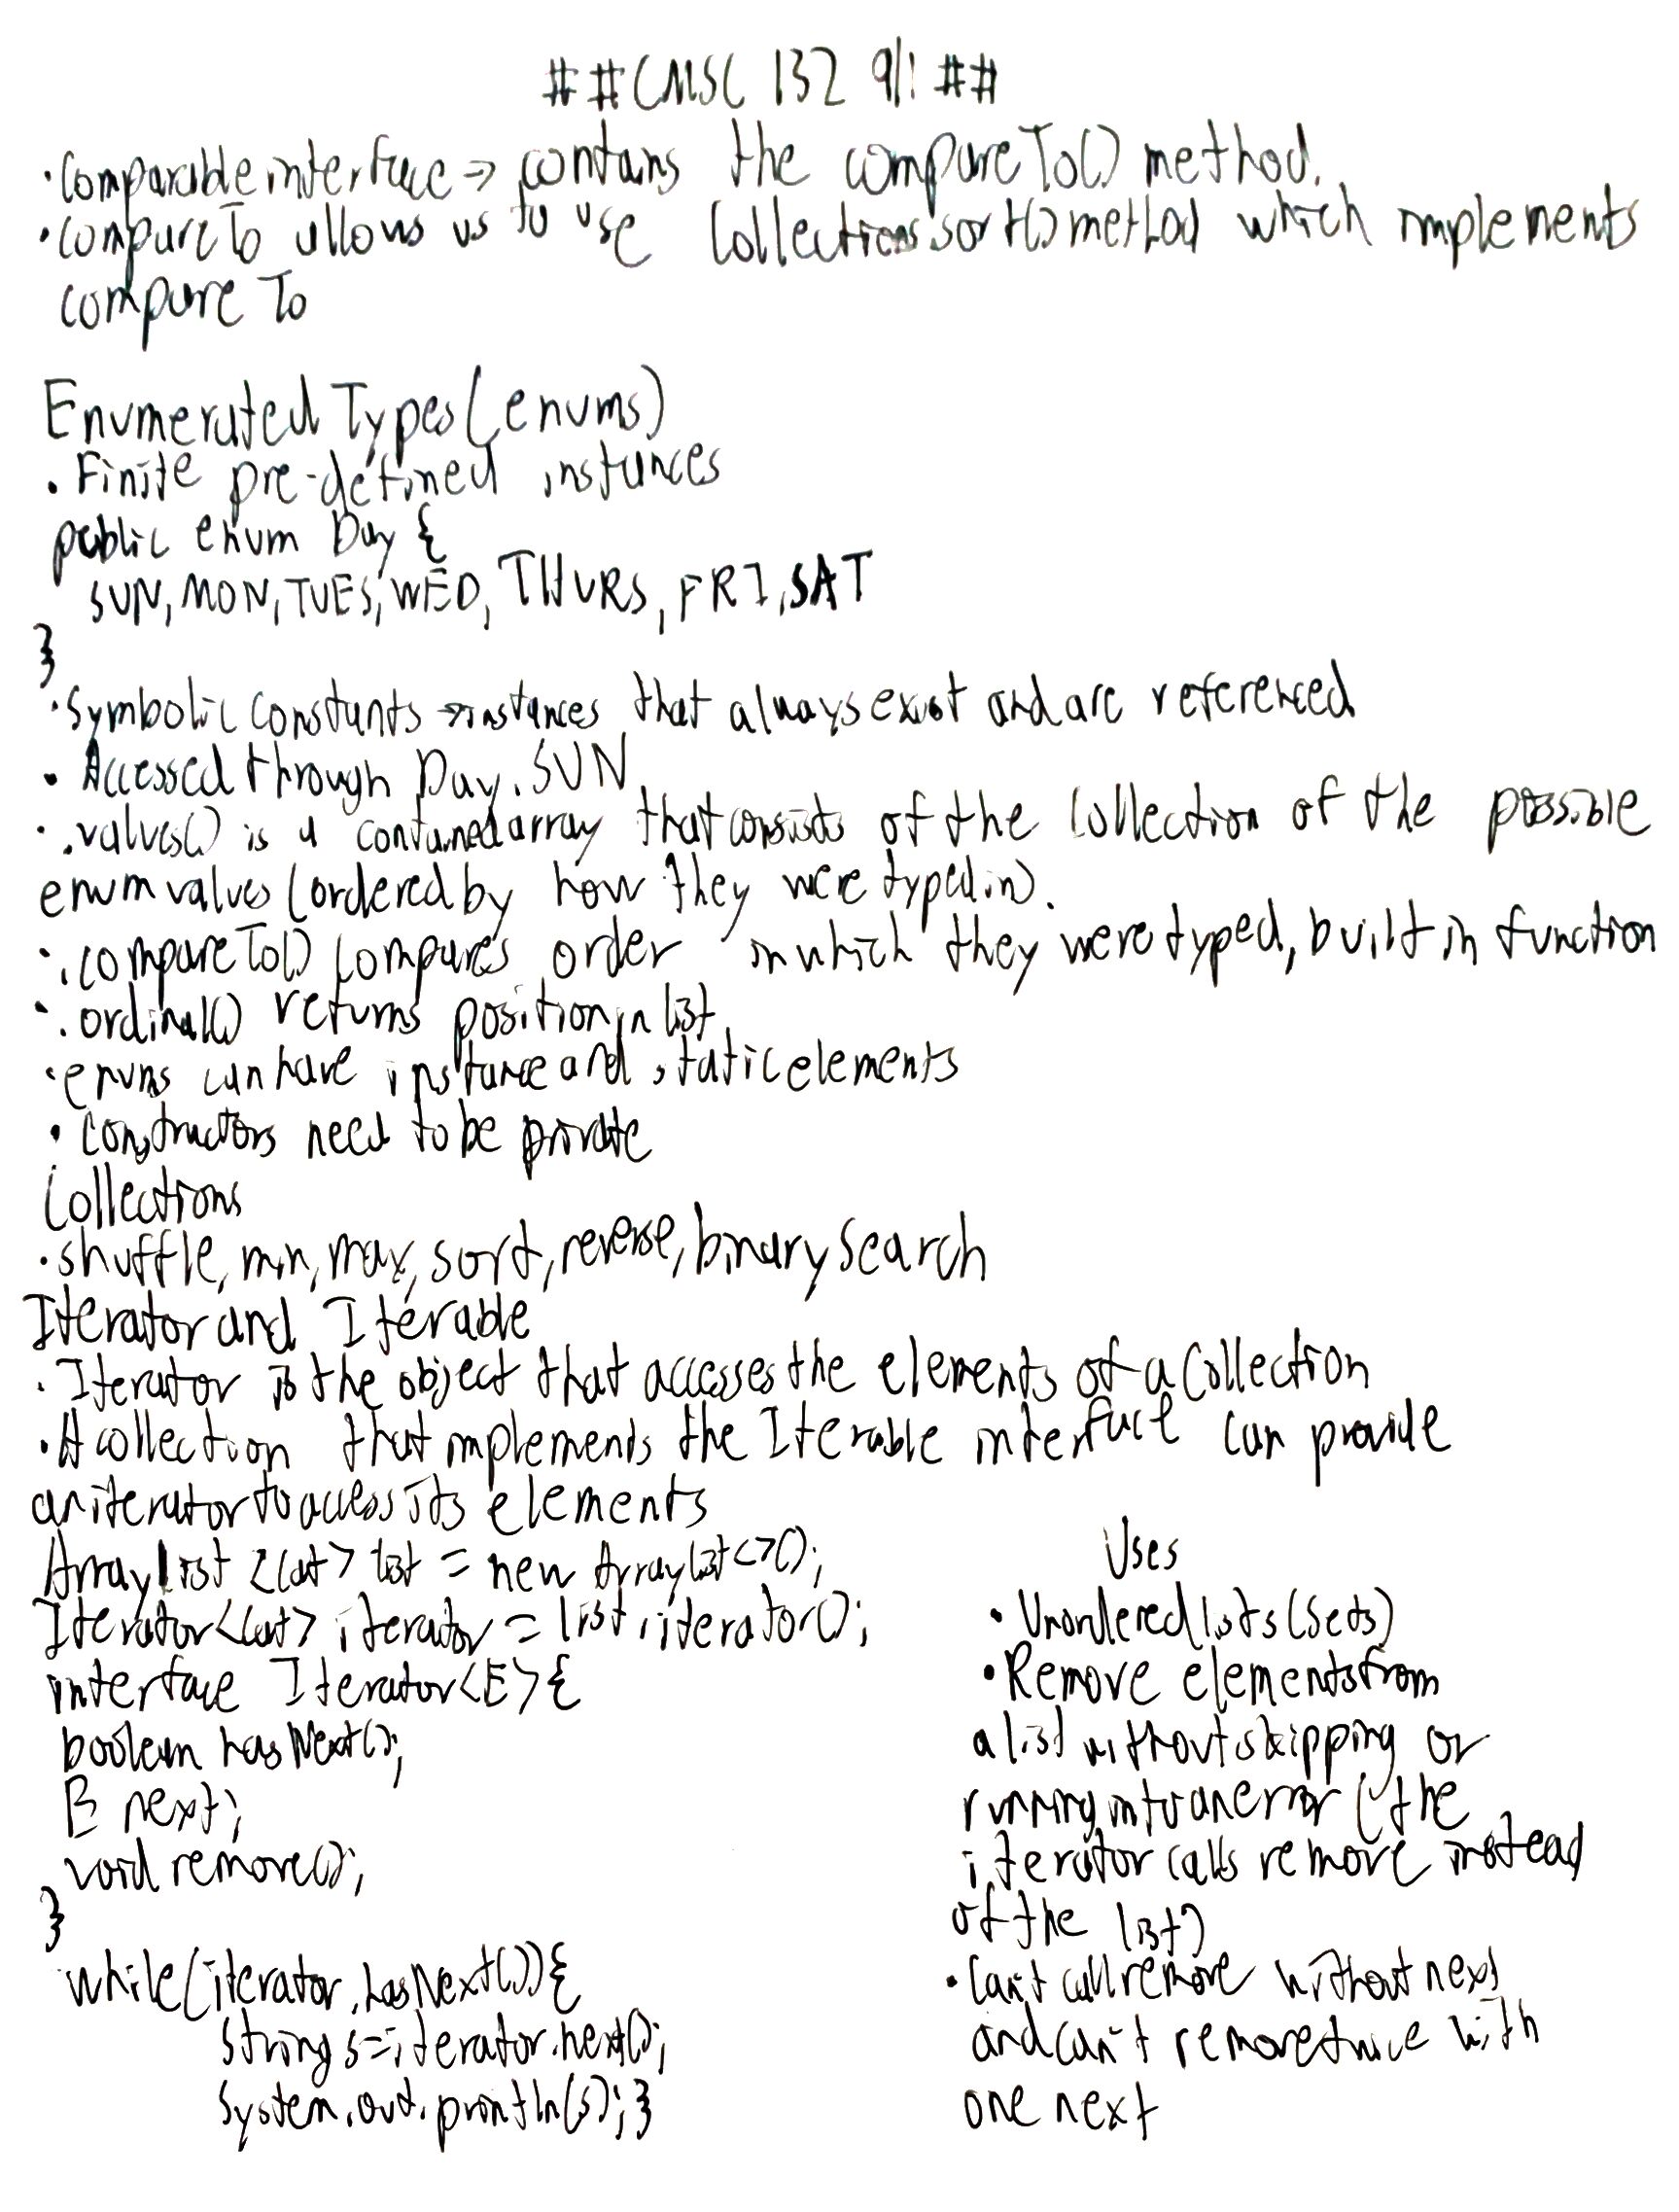 ##CMSC 132 9/1##
·Comparable interface → contains the compareTo() method.
·compareTo allows us to use Collections.sort() method which implements
compareTo
Enumerated Types (enums)
·Finite pre-defined instances
public enum Day {
SUN, MON, TUES, WED, THURS, FRI, SAT
}
·Symbolic Constants → instances that always exist and are referenced
·Accessed through Day.SUN
·.values() is a contained array that consists of the collection of the possible
enum values (ordered by how they were typed in).
·.compareTo() compares order in which they were typed, built in function
·.ordinal() returns position in list
·enums can have instance and static elements
·Constructors need to be private
Collections
·shuffle, min, max, sort, reverse, binary search
Iterator and Iterable
·Iterator is the object that accesses the elements of a Collection
·A collection that implements the Iterable interface can provide
an iterator to access its elements
ArrayList <Cat> list = new ArrayList<>();
Iterator<Cat> iterator = list.iterator();
interface Iterator<E>{
boolean hasNext();
E next;
void remove();
}
while(iterator.hasNext()){
String s=iterator.next();
System.out.println(s);}
Uses
·Unordered lists (Sets)
·Remove elements from
a list without skipping or
running into an error (the
iterator calls remove instead
of the list)
·Can't call remove without next
and can't remove twice with
one next